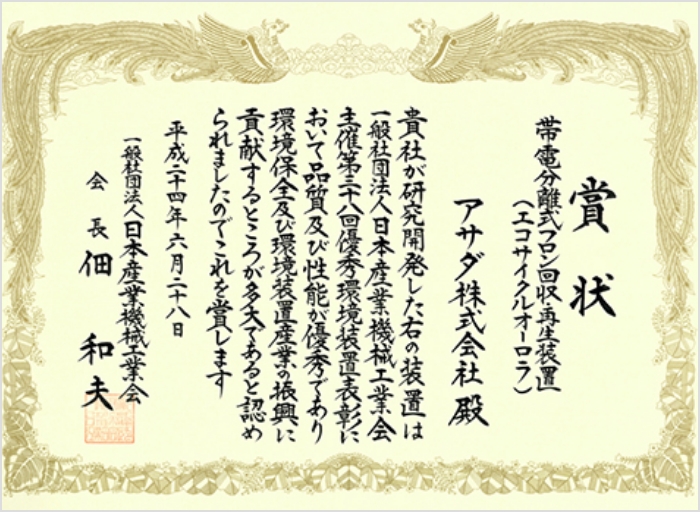 賞状
帯電分離式フロン回収・再生装置
（エコサイクルオーロラ）
アサダ株式会社 殿
貴社が研究開発した右の装置は
一般社団法人日本産業機械工業会
主催第三十八回優秀環境装置表彰に
おいて品質及び性能が優秀であり
環境保全及び環境装置産業の振興に
貢献するところが多大であると認め
られましたのでこれを賞します
平成二十四年六月二十八日
一般社団法人日本産業機械工業会
会長 佃 和夫